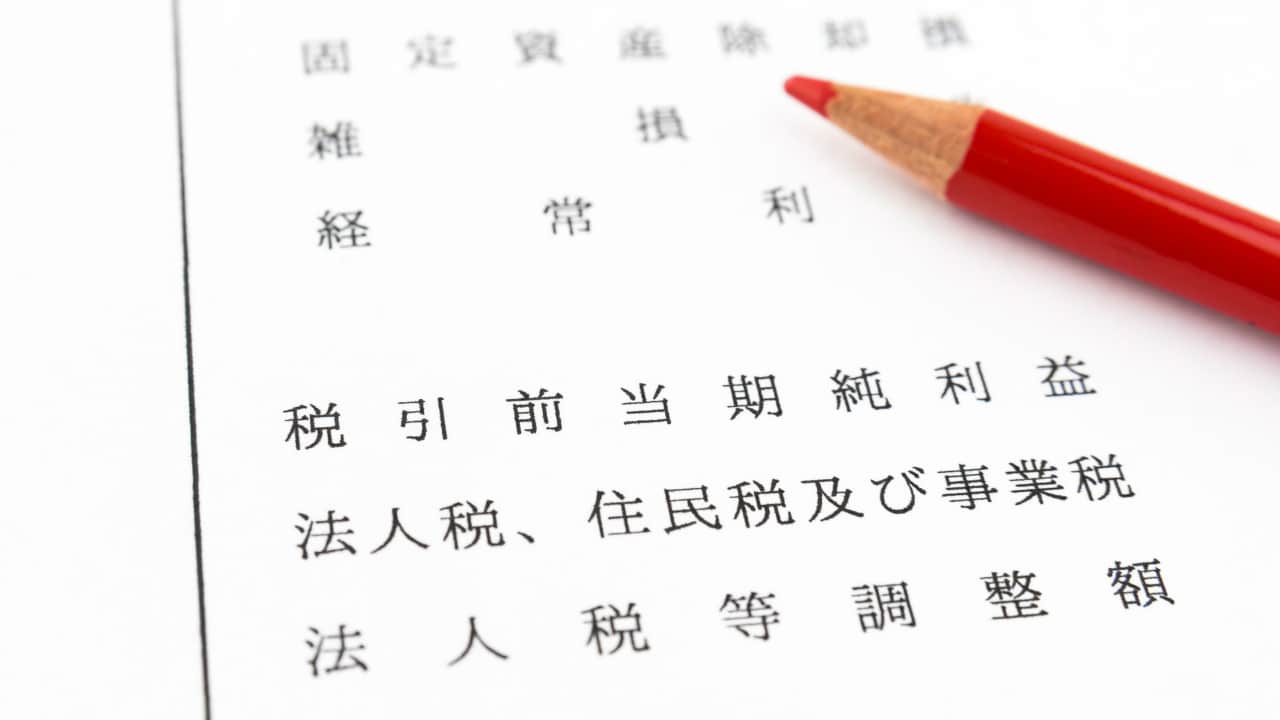 固定資産除却損
雑損
経常利
税引前当期純利益
法人税、住民税及び事業税
法人税等調整額